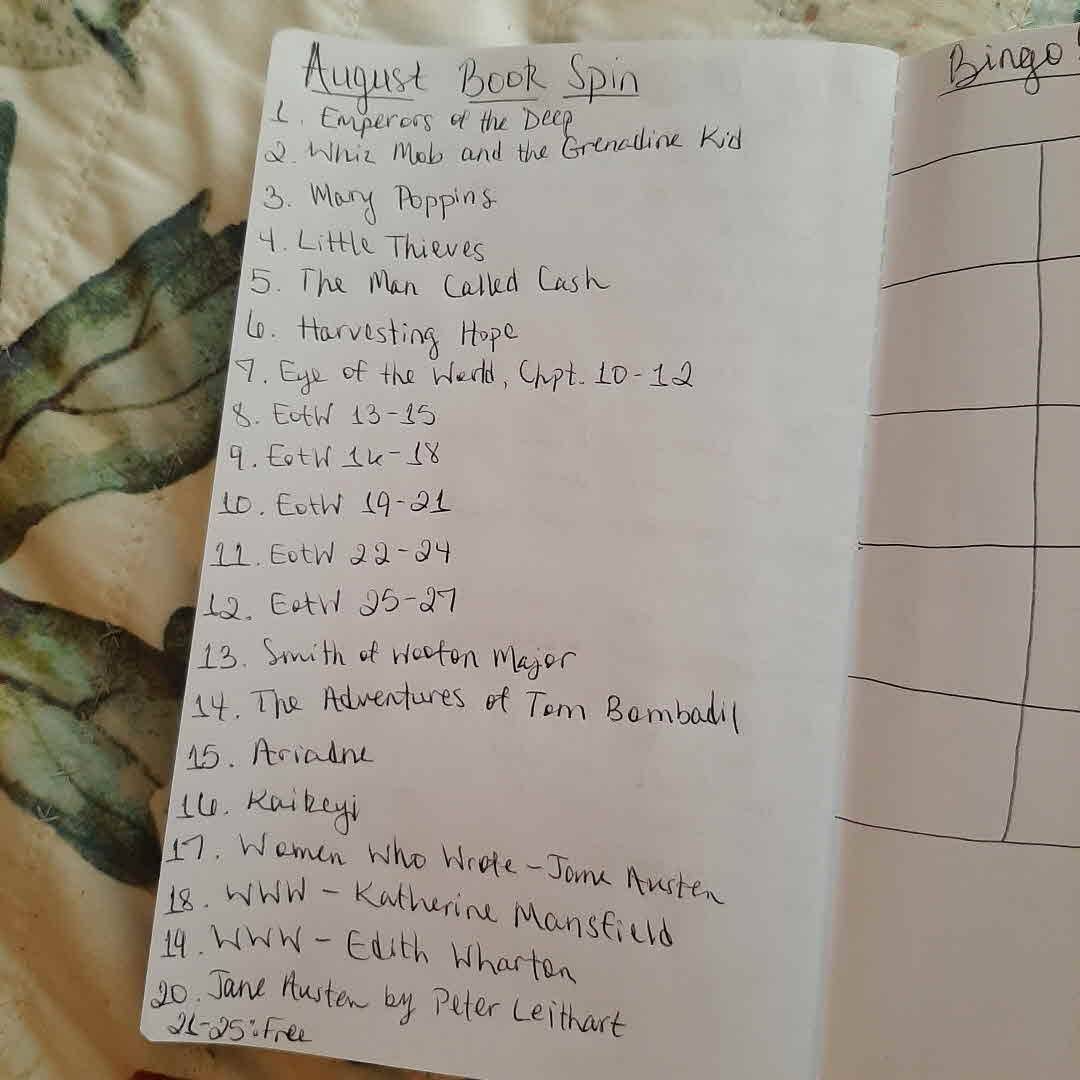 August Book Spin
1. Emperors of the Deep
2. Whiz Mob and the Grenadine Kid
3. Mary Poppins
4. Little Thieves
5. The Man Called Cash
6. Harvesting Hope
7. Eye of the World, Chpt. 10-12
8. EotW 13-15
9. EotW 16-18
10. EotW 19-21
11. EotW 22-24
12. EotW 25-27
13. Smith of Wooton Major
14. The Adventures of Tom Bombadil
15. Ariadne
16. Kaikeyi
17. Women Who Wrote - Jane Austen
18. WWW - Katherine Mansfield
19. WWW - Edith Wharton
20. Jane Austen by Peter Leithart
21-25: Free
Bingo!